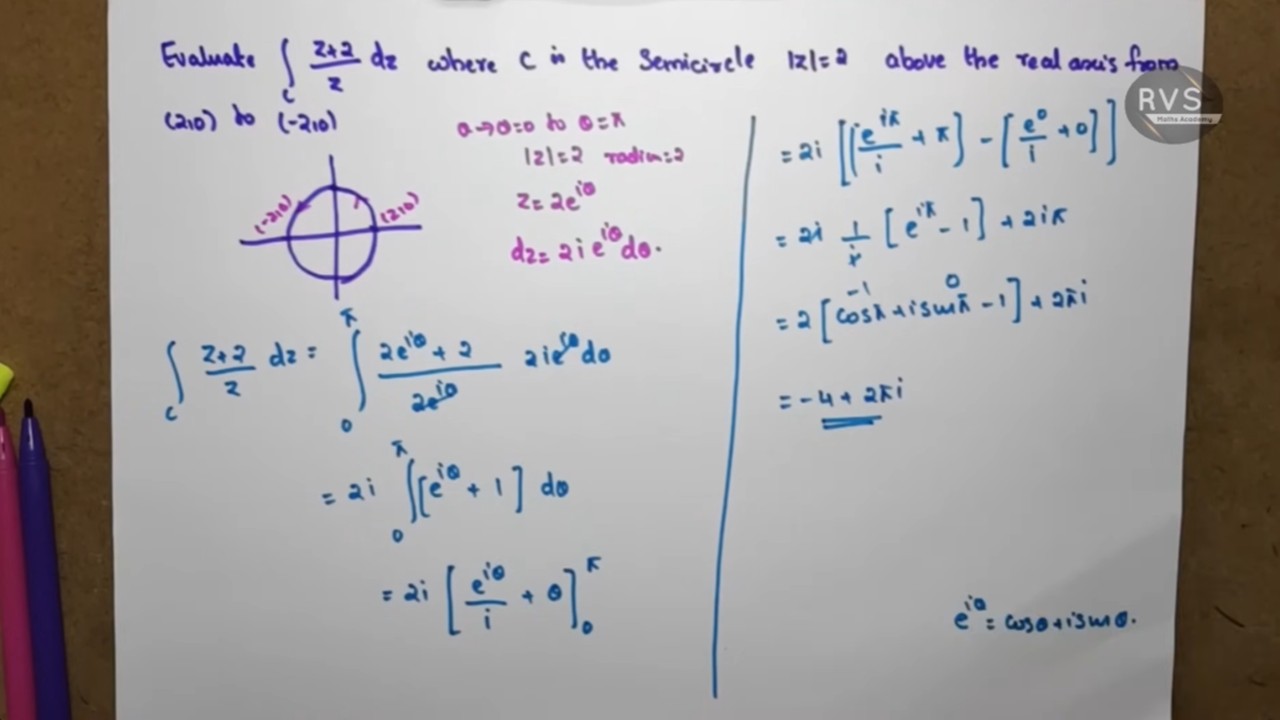 Evaluate ∫_C (z+2)/z dz where C is the Semicircle |z|=2 above the real axis from
(2,0) to (-2,0)
θ→θ=0 to θ=π
|z|=2 radius=2
z=2e^{iθ}
dz=2ie^{iθ}dθ.
(-2,0) (2,0)
∫_C (z+2)/z dz = ∫_0^π (2e^{iθ}+2)/(2e^{iθ}) 2ie^{iθ}dθ
= 2i ∫_0^π [e^{iθ}+1] dθ
= 2i [e^{iθ}/i + θ]_0^π
RVS
Maths Academy
= 2i [[e^{iπ}/i + π] - [e^0/i + 0]]
= 2i 1/i [e^{iπ}-1] + 2iπ
-1 0
= 2 [cosπ+isinπ-1] + 2πi
= -4 + 2πi
e^{iθ} = cosθ+isinθ.